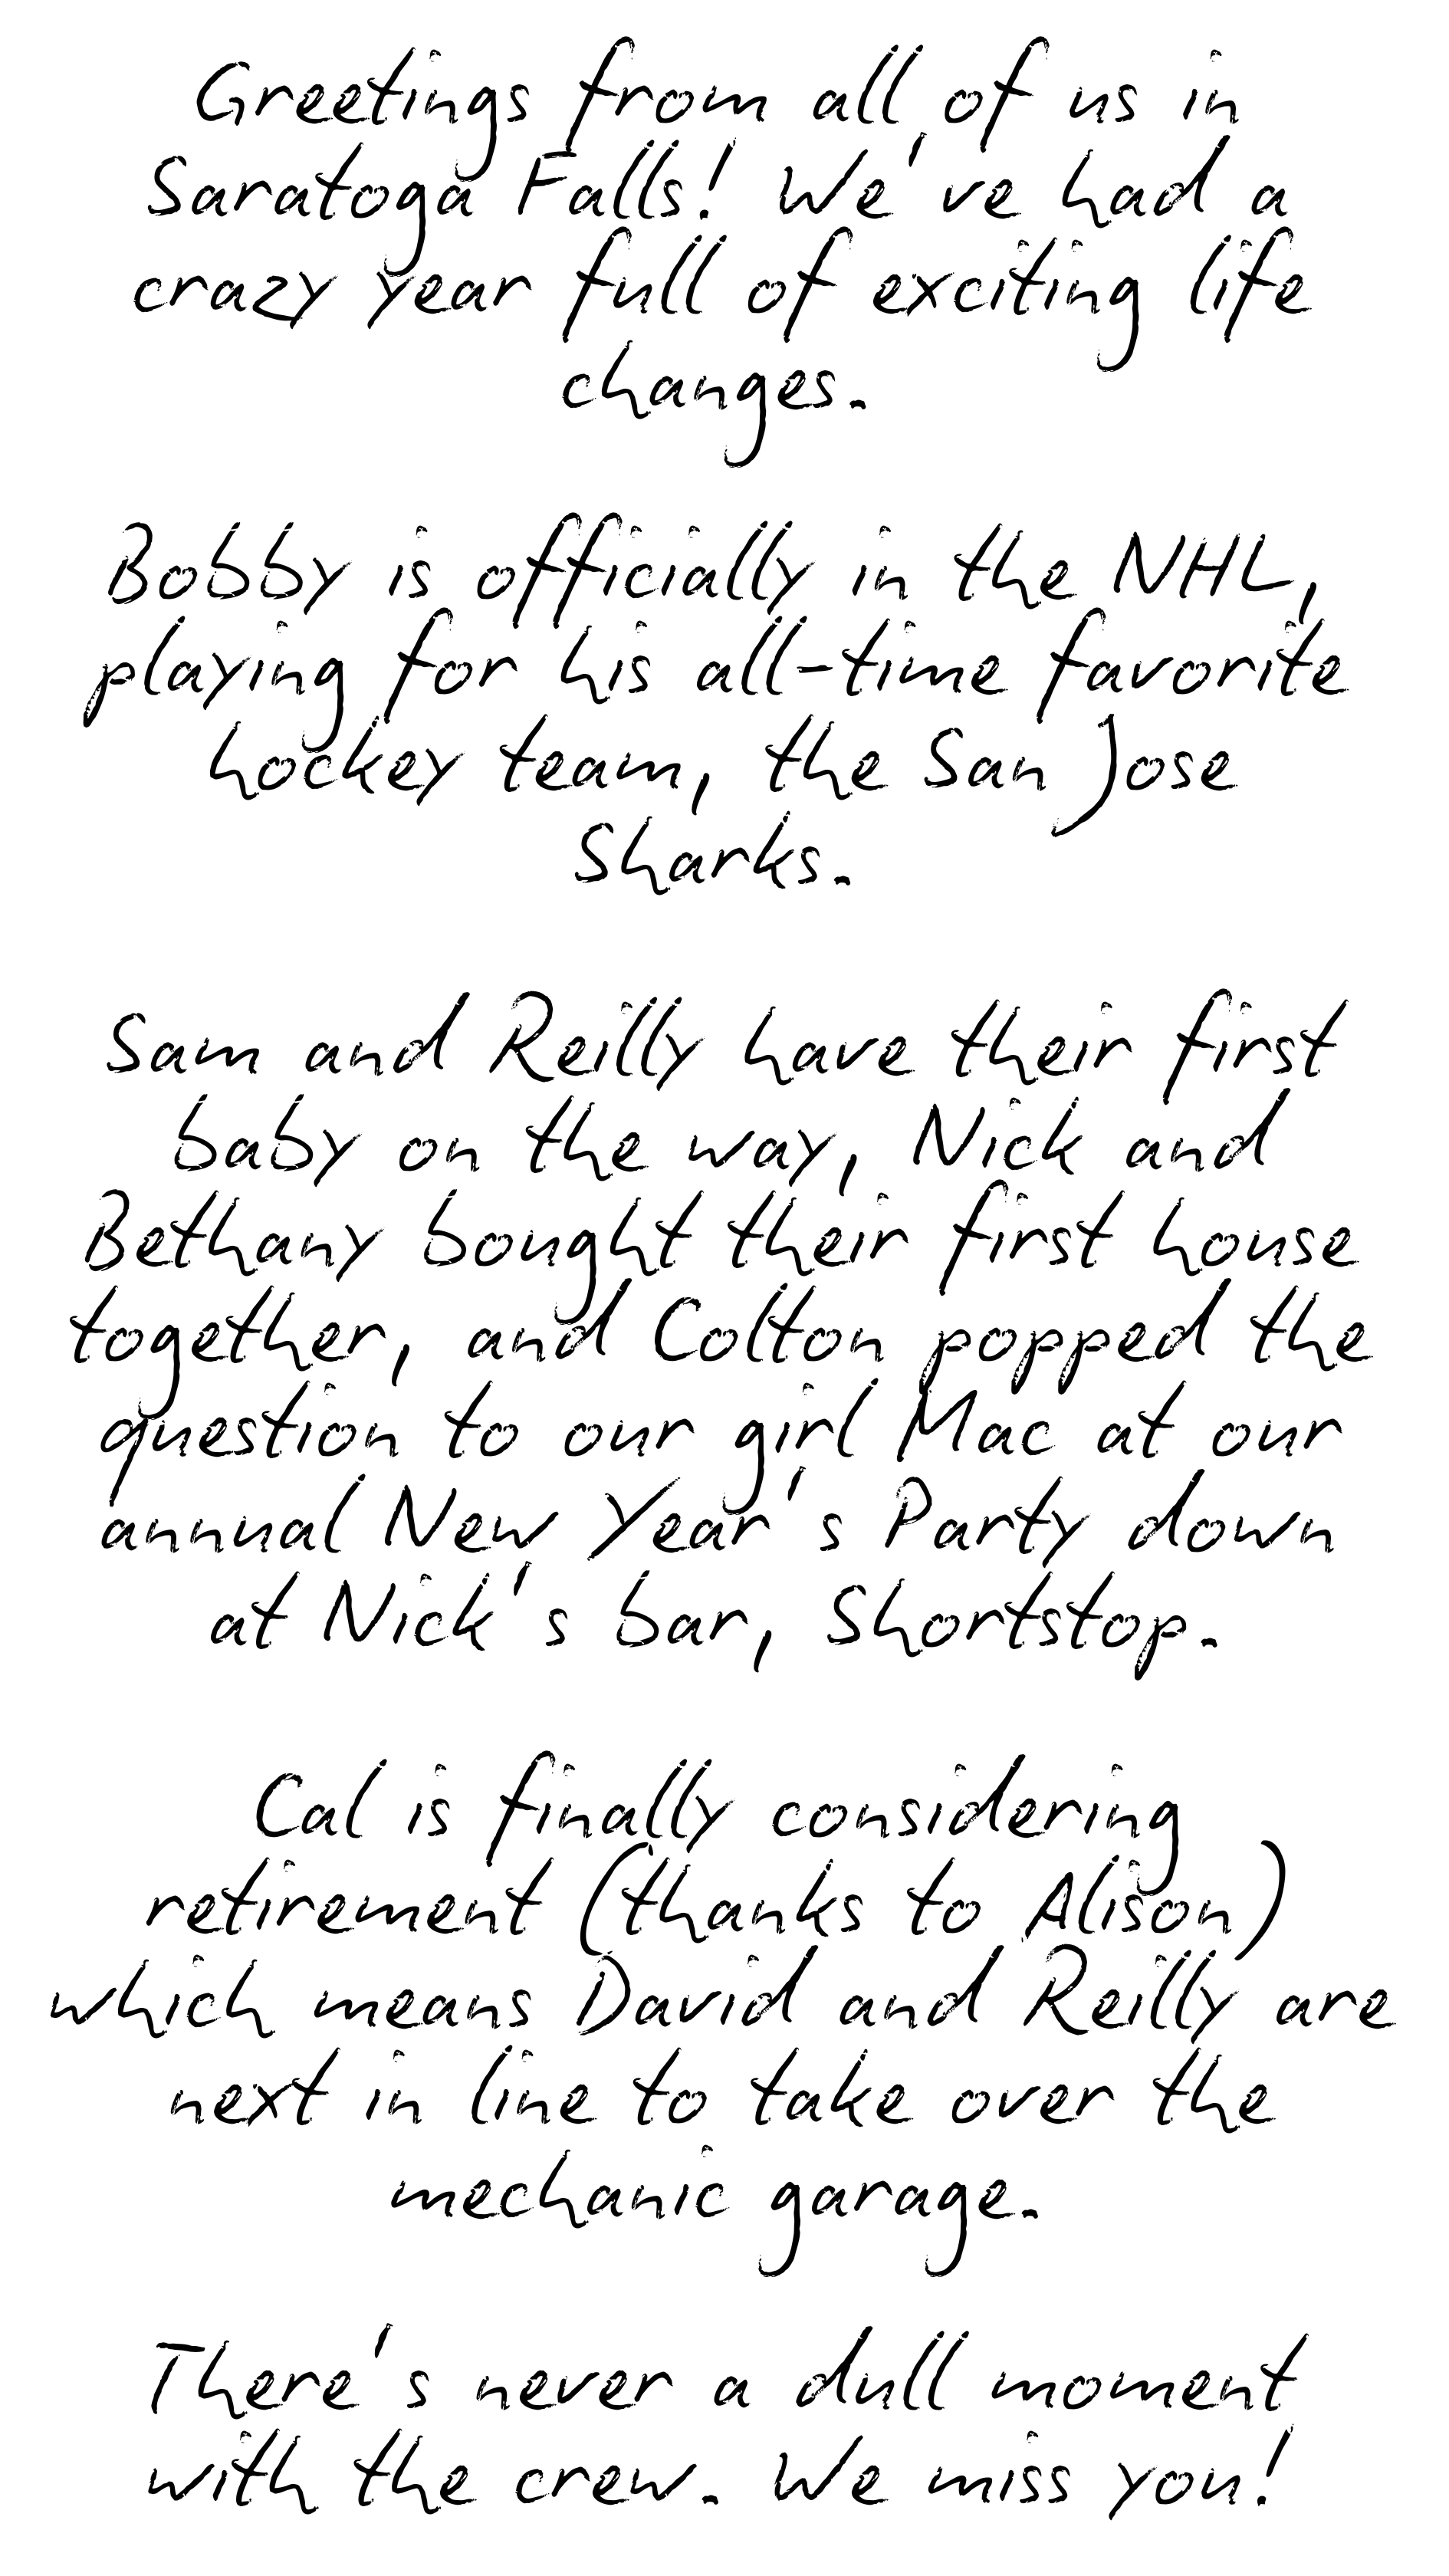 Greetings from all of us in
Saratoga Falls! We've had a
crazy year full of exciting life
changes.
Bobby is officially in the NHL,
playing for his all-time favorite
hockey team, the San Jose
Sharks.
Sam and Reilly have their first
baby on the way, Nick and
Bethany bought their first house
together, and Colton popped the
question to our girl Mac at our
annual New Year's Party down
at Nick's bar, Shortstop.
Cal is finally considering
retirement (thanks to Alison)
which means David and Reilly are
next in line to take over the
mechanic garage.
There's never a dull moment
with the crew. We miss you!